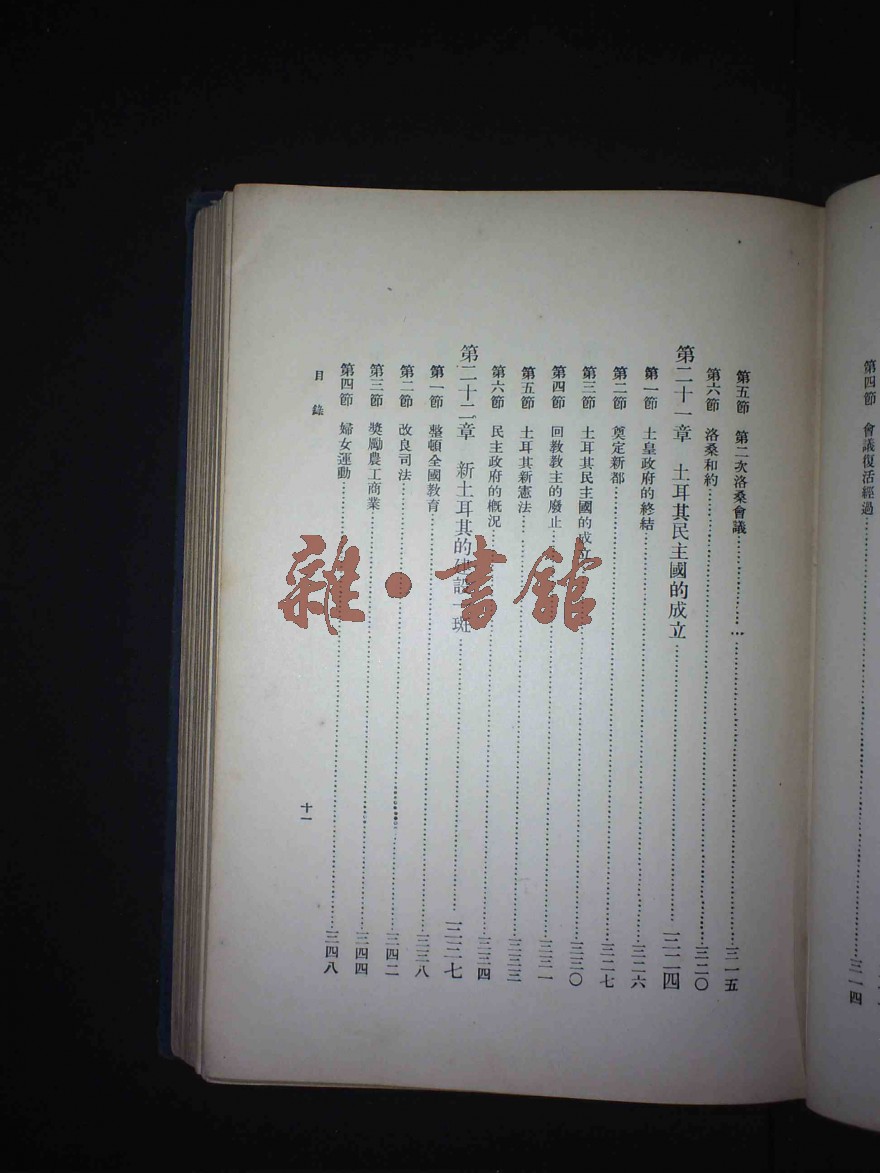 第四節　會議復活經過……三一四
第五節　第二次洛桑會議……三一五
第六節　洛桑和約……三二〇
第二十一章　土耳其民主國的成立……三二四
第一節　土皇政府的終結……三二六
第二節　奠定新都……三二七
第三節　土耳其民主國的成立……三三〇
第四節　回教教主的廢止……三三一
第五節　土耳其新憲法……三三三
第六節　民主政府的概況……三三四
第二十二章　新土耳其的建設一斑……三三七
第一節　整頓全國教育……三三八
第二節　改良司法……三四二
第三節　獎勵農工商業……三四四
第四節　婦女運動……三四八
目錄
十一
雜·書館